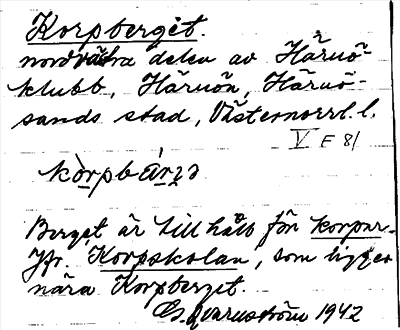 Korpberget.
nordvästra delen av Härnö-
klubb, Härnön, Härnö-
sands stad, Västernorrl. l.
V F 81
kòrpbárʒə
Berget är tillhåll för korpar.
Jfr. Korpskolan, som ligger
nära Korpberget.
Qvarnström 1942